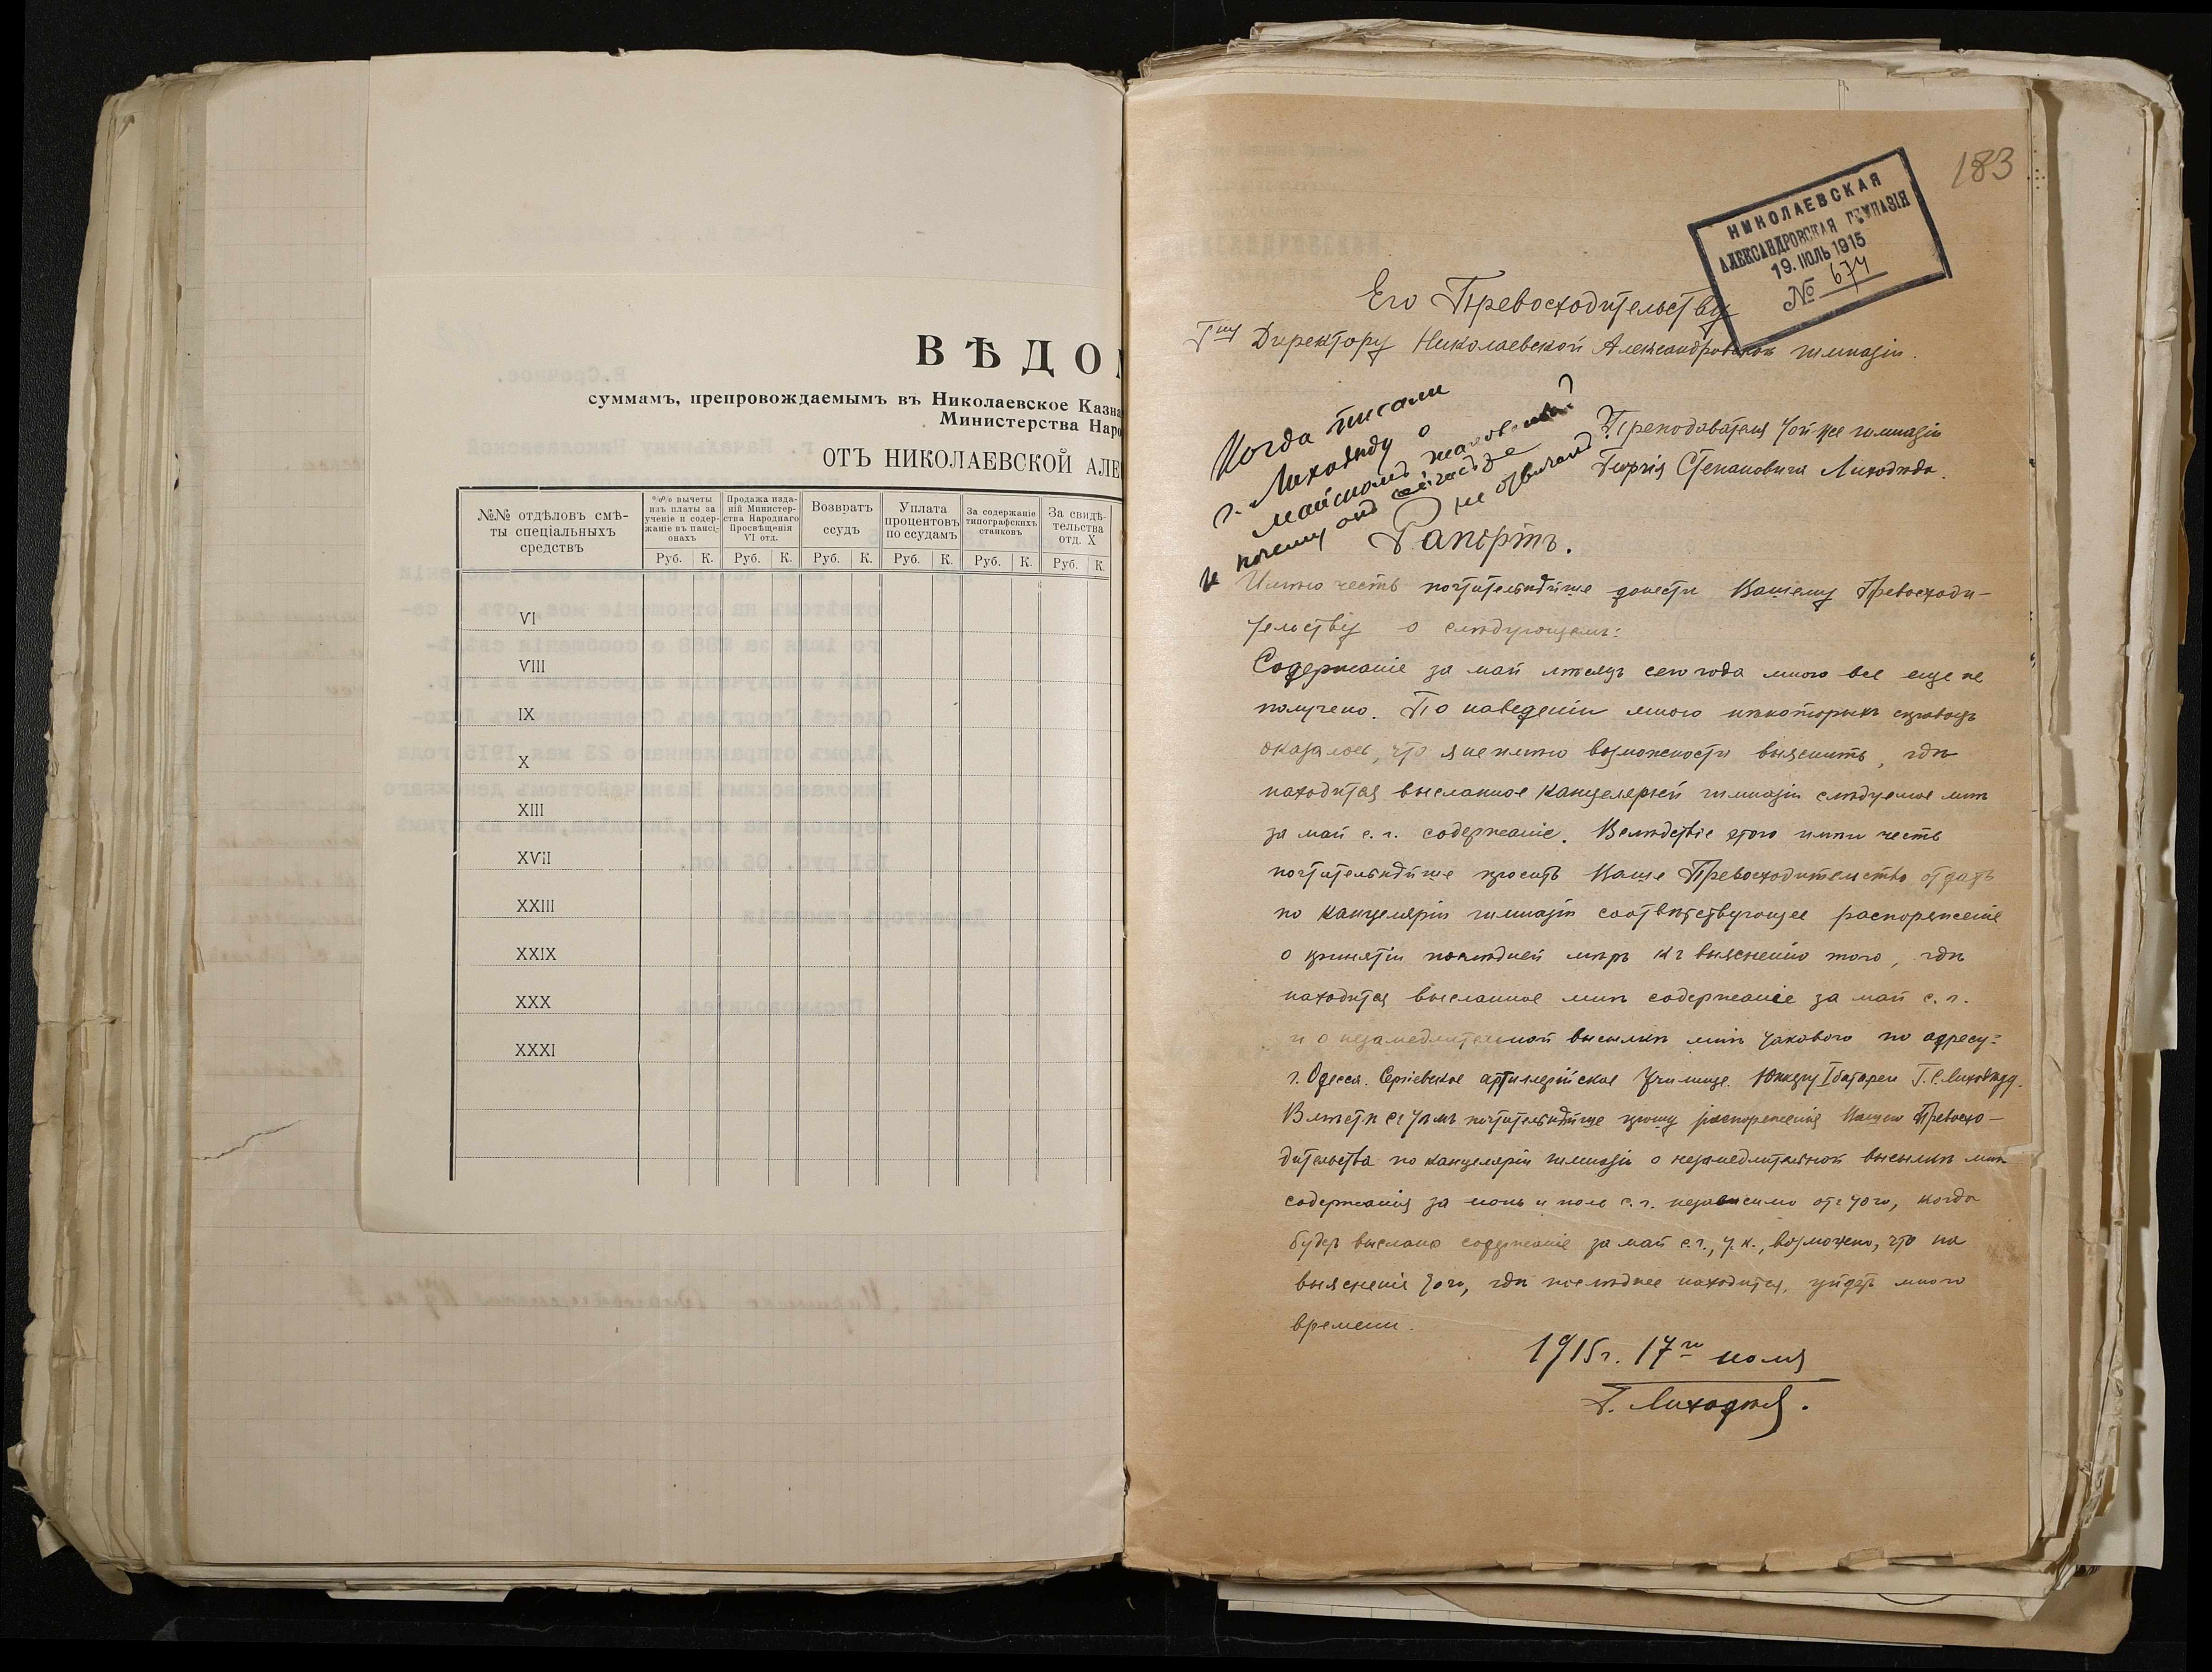 ВѢДО
суммамъ, препровождаемымъ въ Николаевское Казна
Министерства Наро
ОТЪ НИКОЛАЕВСКОЙ АЛЕ
№№ отдѣловъ смѣ-
ты спеціальныхъ
средствъ
%% вычеты
изъ платы за
ученіе и содер-
жаніе въ пансі-
онахъ
Продажа изда-
ній Министер-
ства Народнаго
Просвѣщенія
VI отд.
Возвратъ
ссудъ
Уплата
процентовъ
по ссудамъ
За содержаніе
типографскихъ
станковъ
За свидѣ-
тельства
отд. X
Руб. К. Руб. К. Руб. К. Руб. К. Руб. К. Руб. К.
VI
VIII
IX
X
XIII
XVII
XXIII
XXIX
XXX
XXXI
183
НИКОЛАЕВСКАЯ
АЛЕКСАНДРОВСКАЯ ГИМНАЗІЯ
19. ІЮЛЬ 1915
№ 674
Его Превосходительству
Гну Директору Николаевской Александровской гимназіи.
Когда писали
г. Лиходѣду о
майскомъ жалованьи?
и почему онъ
не отвѣчалъ?
Преподавателя той-же гимназіи
Георгія Степановича Лиходѣда.
Рапортъ.
Имѣю честь почтительнѣйше донести Вашему Превосходи-
тельству о слѣдующемъ:
Содержаніе за май мѣсяцъ сего года мною все еще не
получено. По наведеніи мною нѣкоторыхъ справокъ
оказалось, что я не имѣю возможности выяснить, гдѣ
находится высланное канцеляріей гимназіи слѣдуемое мнѣ
за май с. г. содержаніе. Вслѣдствіе этого имѣю честь
почтительнѣйше просить Ваше Превосходительство отдать
по канцеляріи гимназіи соотвѣтствующее распоряженіе
о принятіи послѣдней мѣръ къ выясненію того, гдѣ
находится высланное мнѣ содержаніе за май с. г.
и о незамедлительной высылкѣ мнѣ такового по адресу:
г. Одесса. Сергіевское артиллерійское Училище. Юнкеру I батареи Г. С. Лиходѣду.
Вмѣстѣ съ тѣмъ почтительнѣйше прошу распоряженія Вашего Превосхо-
дительства по канцеляріи гимназіи о незамедлительной высылкѣ мнѣ
содержанія за іюнь и іюль с. г. независимо отъ того, когда
будетъ выслано содержаніе за май с. г., т. к., возможно, что на
выясненіе того, гдѣ послѣднее находится, уйдетъ много
времени.
1915 г. 17го іюля
Г. Лиходѣдъ.